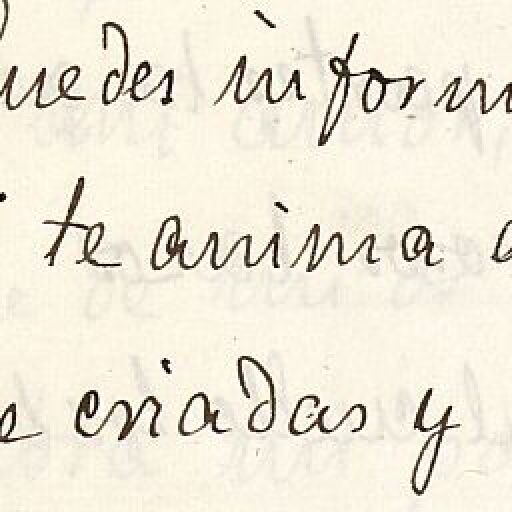 puedes inform
te anima a
e criadas y